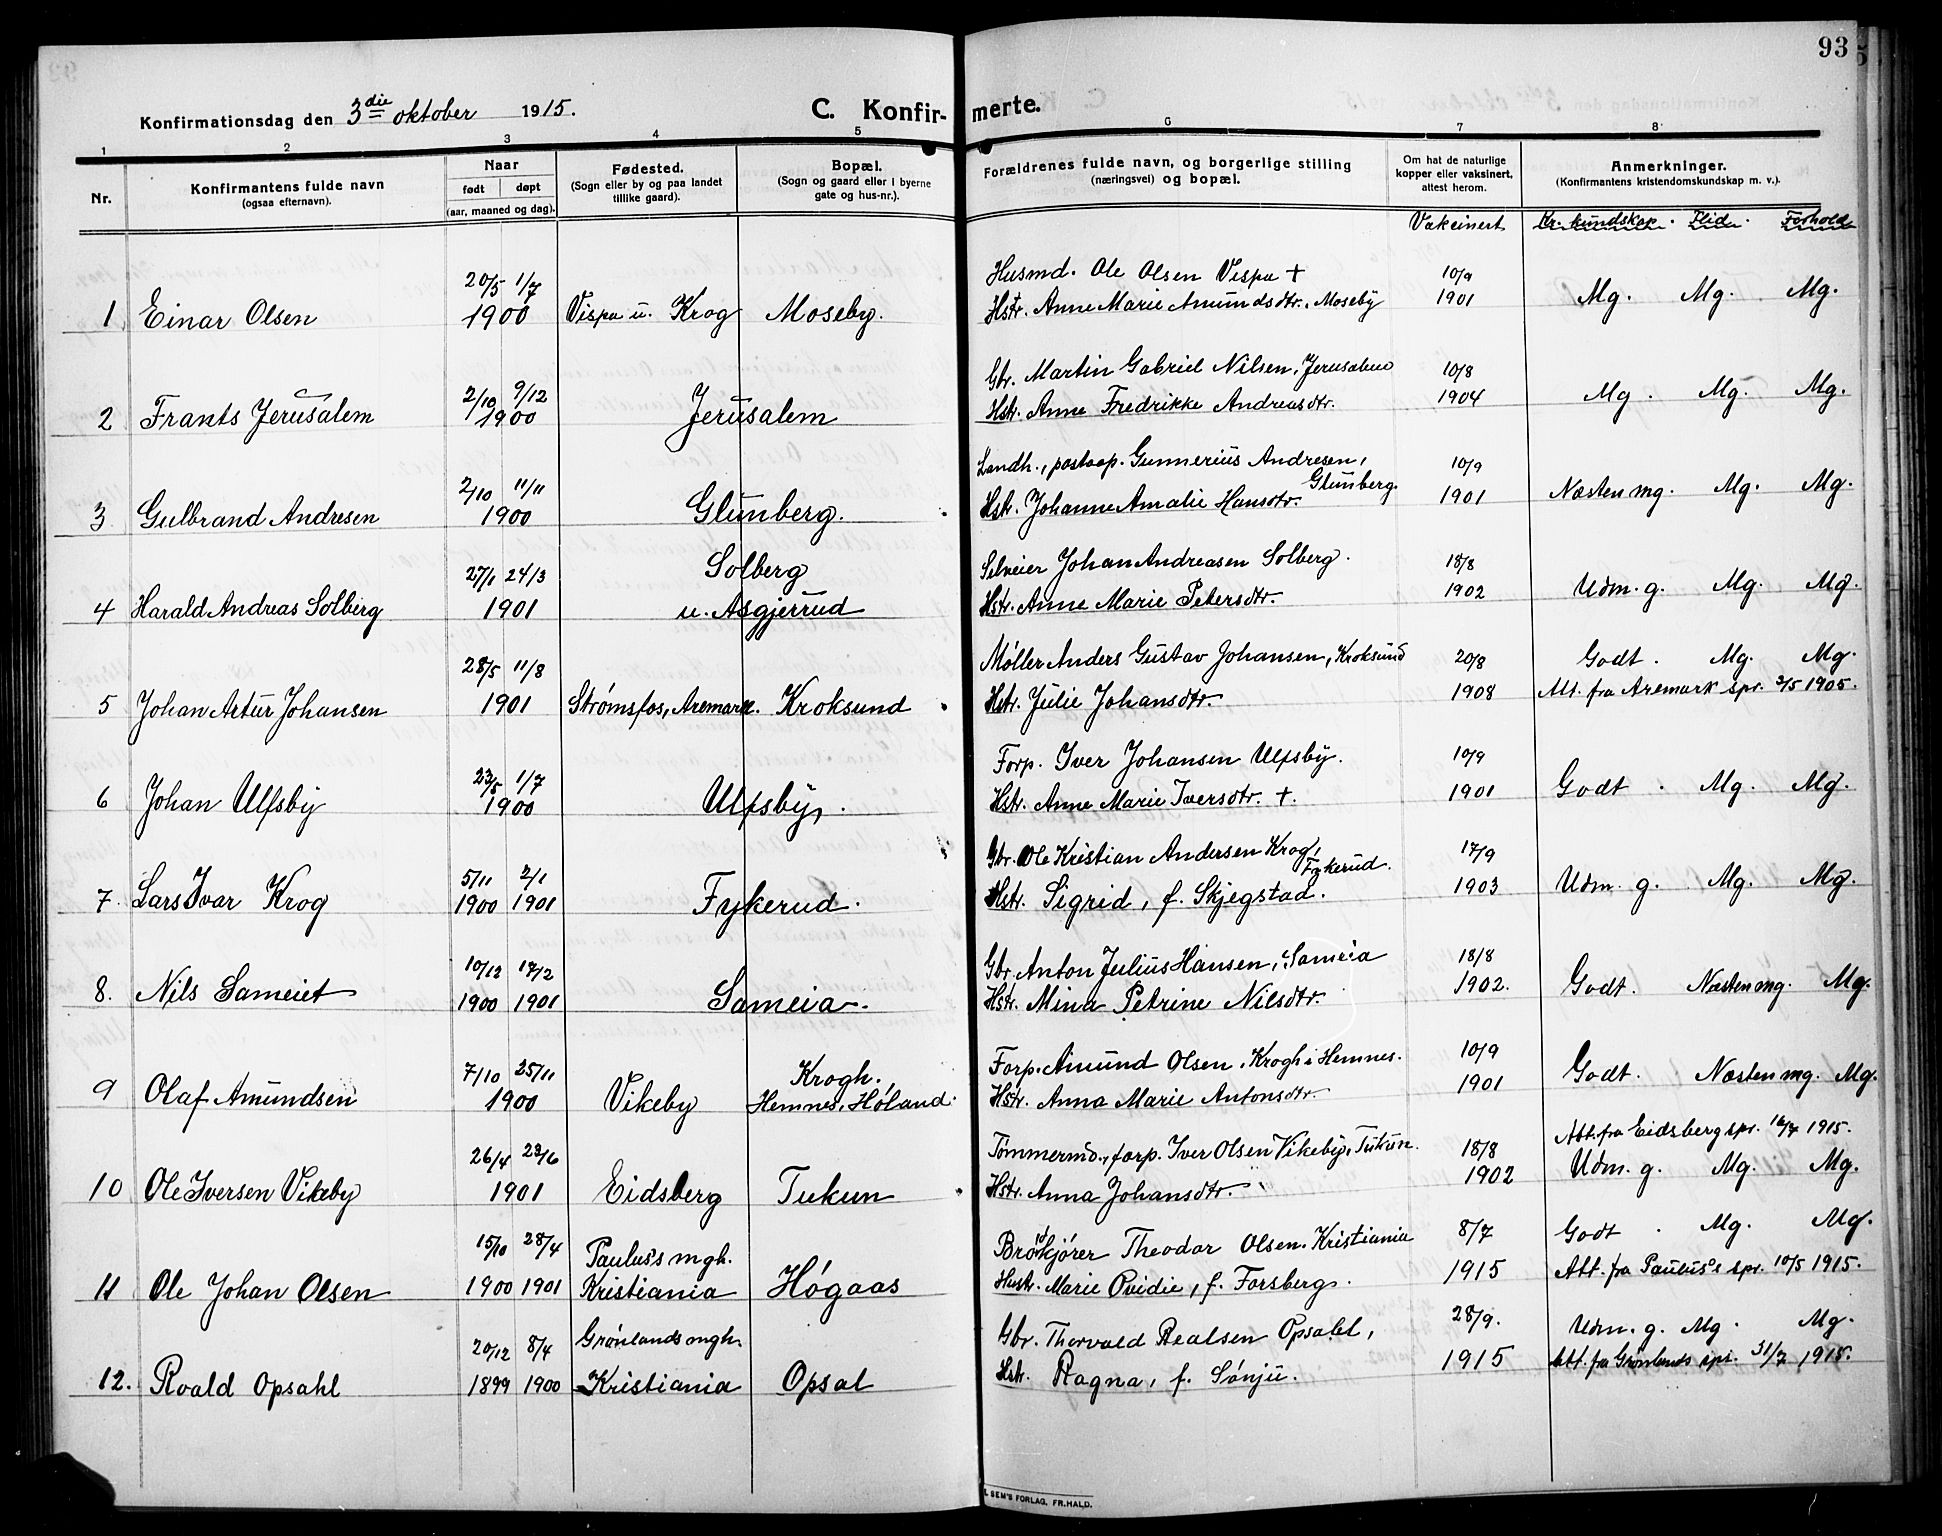 93
Konfirmationsdag den 3die oktober 1915. C. Konfir- merte.
1 2 3 4 5 6 7 8
Nr. Konfirmantens fulde navn (ogsaa efternavn). Naar født døpt (aar, maaned og dag). Fødested. (Sogn eller by og paa landet tillike gaard). Bopæl. (Sogn og gaard eller i byerne gate og hus-nr.). Forældrenes fulde navn, og borgerlige stilling (næringsvei) og bopæl. Om hat de naturlige kopper eller vaksinert, attest herom. Anmerkninger. (Konfirmantens kristendomskundskap m. v.).
Vakcinert Kr. kundskap. Flid. Forhold
20/5 1/7 Husmd. Ole Olsen Vispa + 10/9
1 Einar Olsen 1900 Vispa u. Krog Moseby. Hstr. Anne Marie Amundsdtr., Moseby 1901 Mg. Mg. Mg.
2/10 9/12 Gbr. Martin Gabriel Nilsen, Jerusalem 10/8
2 Frants Jerusalem 1900 Jerusalem Hstr. Anne Fredrikke Andreasdtr. 1904 Mg. Mg. Mg.
2/10 11/11 Landh., postaap. Gunnerius Andresen, Glünberg. 10/9
3 Gulbrand Andresen 1900 Glünberg. Hstr. Johanne Amalie Hansdtr. 1901 Næsten mg. Mg. Mg.
27/1 24/3 Solberg Selveier Johan Andreasen Solberg. 18/8
4 Harald Andreas Solberg 1901 u. Asgjerrud Hstr. Anne Marie Petersdtr. 1902 Udm. g. Mg. Mg.
28/5 11/8 Møller Anders Gustav Johansen, Kroksund 20/8 Godt. Mg. Mg.
5 Johan Artur Johansen 1901 Strømsfos, Aremark. Kroksund Hstr. Julie Johansdtr. 1908 Att. fra Aremark spr. 2/5 1905.
23/5 1/7 Forp. Iver Johansen Ulfsby. 10/9
6 Johan Ulfsby 1900 Ulfsby. Hstr. Anne Marie Iversdtr. +. 1901 Godt. Mg. Mg.
5/11 2/1 Gbr. Ole Kristian Andersen Krog, Fykerud. 17/9
7. Lars Ivar Krog 1900 1901 Fykerud. Hstr. Sigrid, f. Skjegstad. 1903 Udm. g. Mg. Mg.
10/12 17/2 Gbr. Anton Julius Hansen, Sameia 18/8
8. Nils Sameiet 1900 1901 Sameia. Hstr. Mina Petrine Nilsdtr. 1902. Godt. Næsten mg. Mg.
7/10 25/11 Krogh. Forp. Amund Olsen, Krogh i Hemnes. 10/9
9 Olaf Amundsen 1900 Vikeby Hemnes, Høland. Hstr. Anna Marie Antonsdtr. 1901 Godt. Næsten mg. Mg.
26/4 23/6 Tømmermd., forp. Iver Olsen Vikeby, Tukun. 18/8 Att. fra Eidsberg spr. 1915.
10 Ole Iversen Vikeby 1901 Eidsberg Tukun Hstr. Anna Johansdtr. 1902 Udm. g. Mg. Mg.
15/10 28/4 Paulus's mgh. Brødkjører Theodor Olsen. Kristiania 8/7 Godt. Mg. Mg.
11 Ole Johan Olsen 1900 1901 Kristiania Høgaas Hustr. Marie Ovidie, f. Forsberg. 1915 Att. fra Paulus's spr. 10/5 1915.
20/12 8/4 Grønlands mgh. Gbr. Thorvald Realsen Opsahl, 28/9. Udm. g. Mg. Mg.
12. Roald Opsahl 1899 1900 Kristiania Opsal Hstr. Ragna, f. Sønju. 1915 Att. fra Grønlands spr. 31/7 1915.
SEM'S FORLAG, FR.HALD.